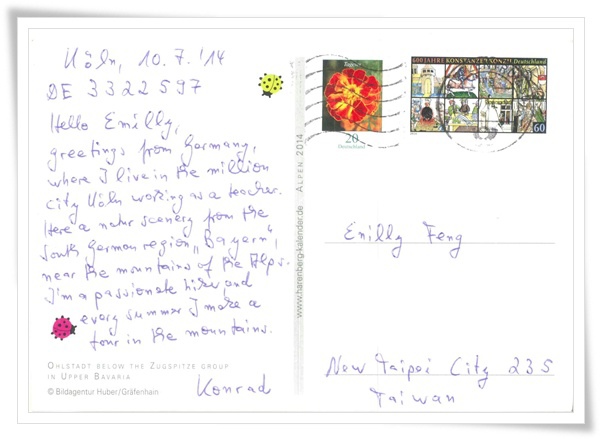 Köln, 10.7.'14
DE 3322597
Hello Emilly,
greetings from Germany,
where I live in the million
city Köln working as a teacher.
Here a natur scenery from the
South German region „Bayern“,
near the mountains of the Alps.
I'm a passionate hiker and
every summer I make a
tour in the mountains.
Konrad
OHLSTADT BELOW THE ZUGSPITZE GROUP
IN UPPER BAVARIA
© Bildagentur Huber/Gräfenhain
www.harenberg-kalender.de ALPEN 2014
Tagetes
20
Deutschland
600 JAHRE KONSTANZER KONZIL Deutschland
60
Emilly Feng
New Taipei City 235
Taiwan